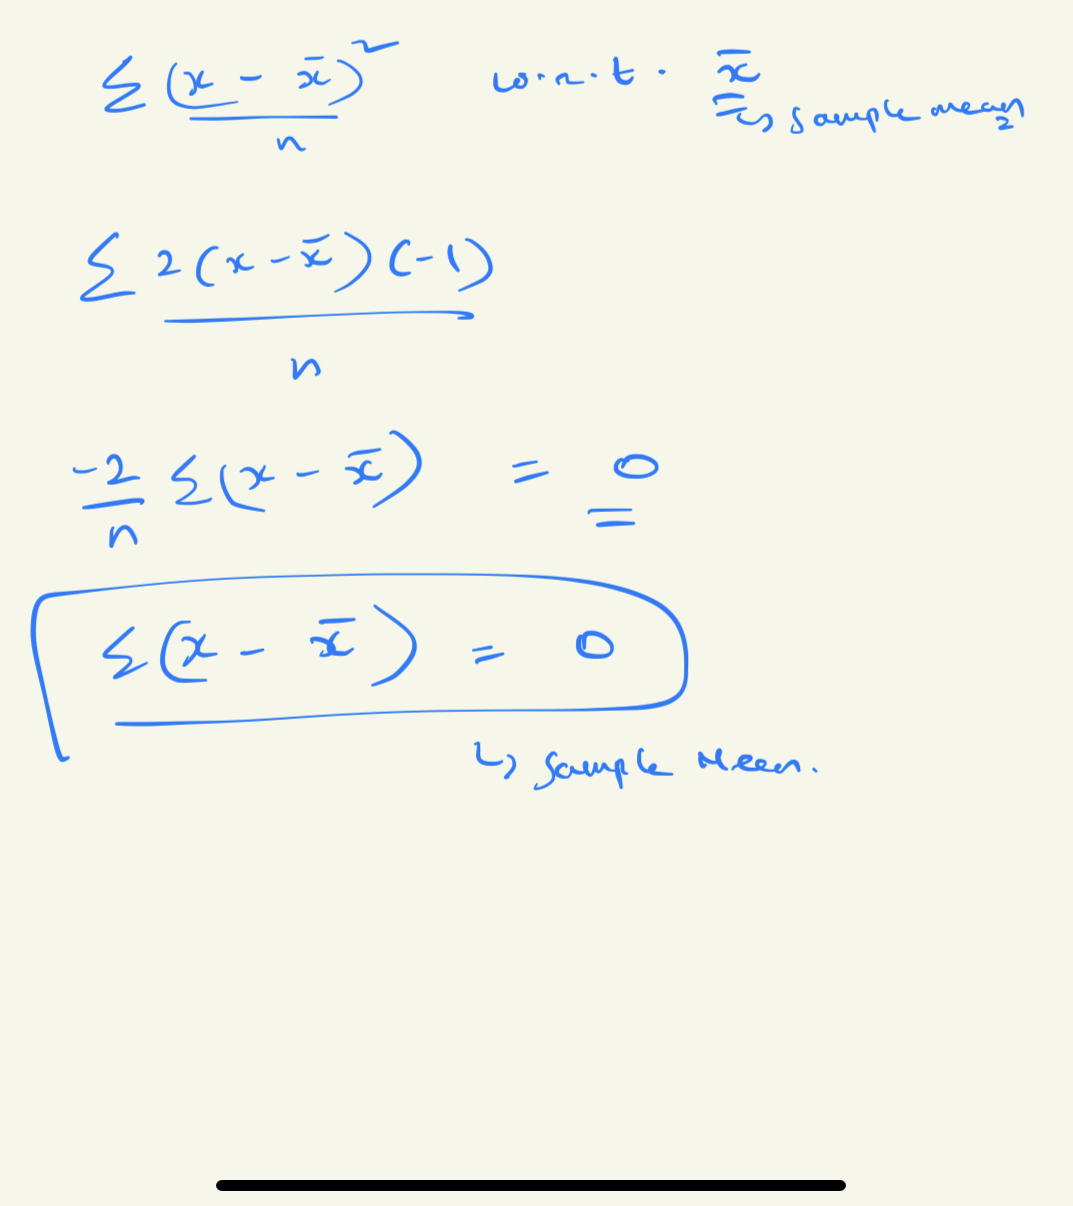 Σ(x - x̄)² / n w.r.t. x̄
↳ sample mean
Σ 2(x - x̄)(-1) / n
-2/n Σ(x - x̄) = 0
Σ(x - x̄) = 0
↳ Sample Mean.